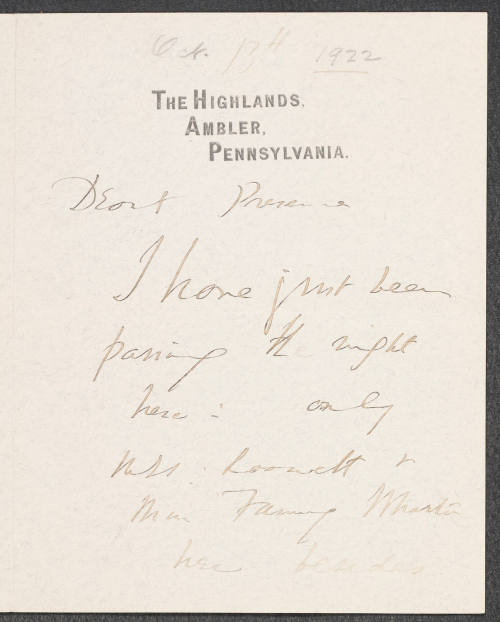 Oct. 13th 1922
THE HIGHLANDS,
AMBLER,
PENNSYLVANIA.
Dearest
I have just been
passing the night
here: only
Mrs. Roosevelt &
Miss Fanny Wharton
here besides